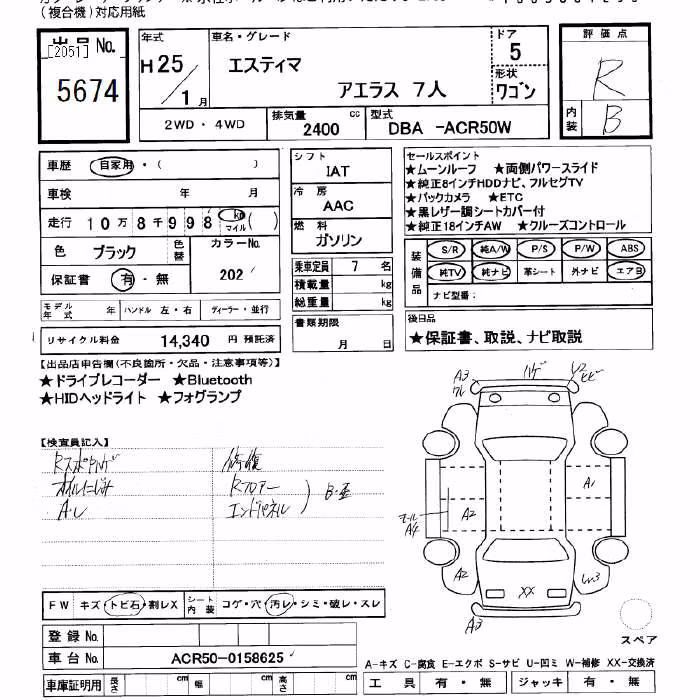 (複合機)対応用紙
出品 No.
[2051]
5674
年式
H25/1月
車名・グレード
エスティマ
アエラス 7人
ドア
5
形状
ワゴン
評価点
R
内装
B
2WD・4WD
排気量
2400 cc
型式
DBA -ACR50W
車歴 自家用・( )
車検 年 月
走行 10万8千998 km マイル ( )
色 ブラック
色替
カラーNo.
202
保証書 有・無
シフト
IAT
冷房
AAC
燃料
ガソリン
乗車定員 7 名
積載量 kg
総重量 kg
セールスポイント
★ムーンルーフ ★両側パワースライド
★純正8インチHDDナビ、フルセグTV
★バックカメラ ★ETC
★黒レザー調シートカバー付
★純正18インチAW ★クルーズコントロール
装備品
S/R 純A/W P/S P/W ABS
純TV 純ナビ 革シート 外ナビ エアB
ナビ型番:
モデル年式 年 ハンドル 左・右 ディーラー・並行
リサイクル料金 14,340 円 預託済
書類期限
月 日
後日品
★保証書、取説、ナビ取説
【出品店申告欄(不良箇所・欠品・注意事項等)】
★ドライブレコーダー ★Bluetooth
★HIDヘッドライト ★フォグランプ
【検査員記入】
Rスポハゲ
オイルにじみ
A・L
修復
Rフロアー
エンドパネル
B・歪
A3
ワレ
ハゲ
U2
ヒビ
A1
A2
モール
A4
A2
XX
A3
FW キズ・トビ石・割レX シート内装 コゲ・穴・汚レ・シミ・破レ・スレ
スペア
登録 No.
車台 No. ACR50-0158625
A-キズ C-腐食 E-エクボ S-サビ U-凹ミ W-補修 XX-交換済
車庫証明用 長さ cm 幅 cm 高さ cm
工具 有・無 ジャッキ 有・無